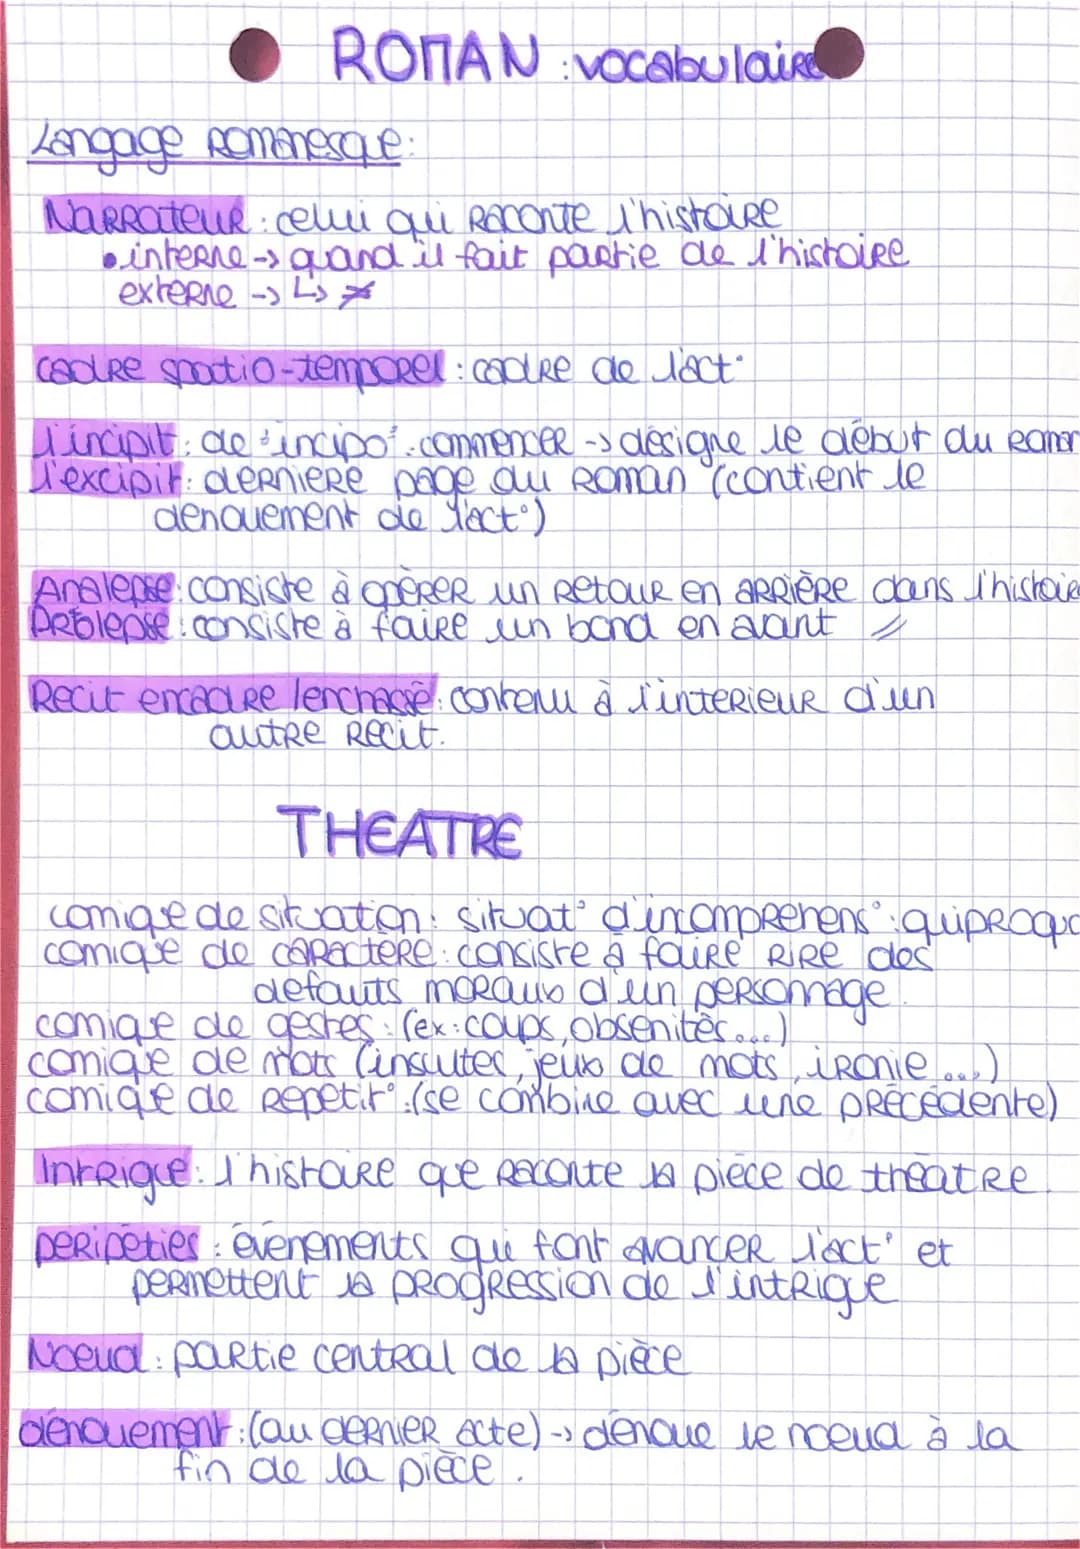 ROMAN : vocabulaire
Langage romanesque :
Narrateur : celui qui raconte l'histoire
• interne -> quand il fait partie de l'histoire
externe -> ↳ ≠
cadre spatio-temporel : cadre de l'act°
l'incipit : de "incipo" : commencer -> désigne le début du roman
l'excipit : derniere page du roman (contient le
denouement de l'act°)
Analepse : consiste à opérer un retour en arrière dans l'histoire
Prolepse : consiste à faire un bond en avant //
Recit encadre / enchassé : contenu à l'interieur d'un
autre recit.
THEATRE
comique de situation : situat° d'incomprehens° : quiproquo
comique de caractere : consiste à faire rire des
defauts moraux d'un personnage.
comique de gestes : (ex : coups, obsenités ...)
comique de mots (insultes, jeux de mots, ironie ...)
comique de repetit° : (se combine avec une précédente)
Intrigue : l'histoire que raconte la pièce de théatre.
peripéties : évenements qui font avancer l'act° et
permettent la progression de l'intrigue
Noeud : partie central de la pièce
dénouement : (au dernier acte) -> dénoue le noeud à la
fin de la pièce.